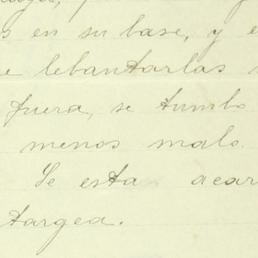 s en su base, y e
e lebantarlas
fuera, se tumbo
menos malo.
Se esta acar
targea.